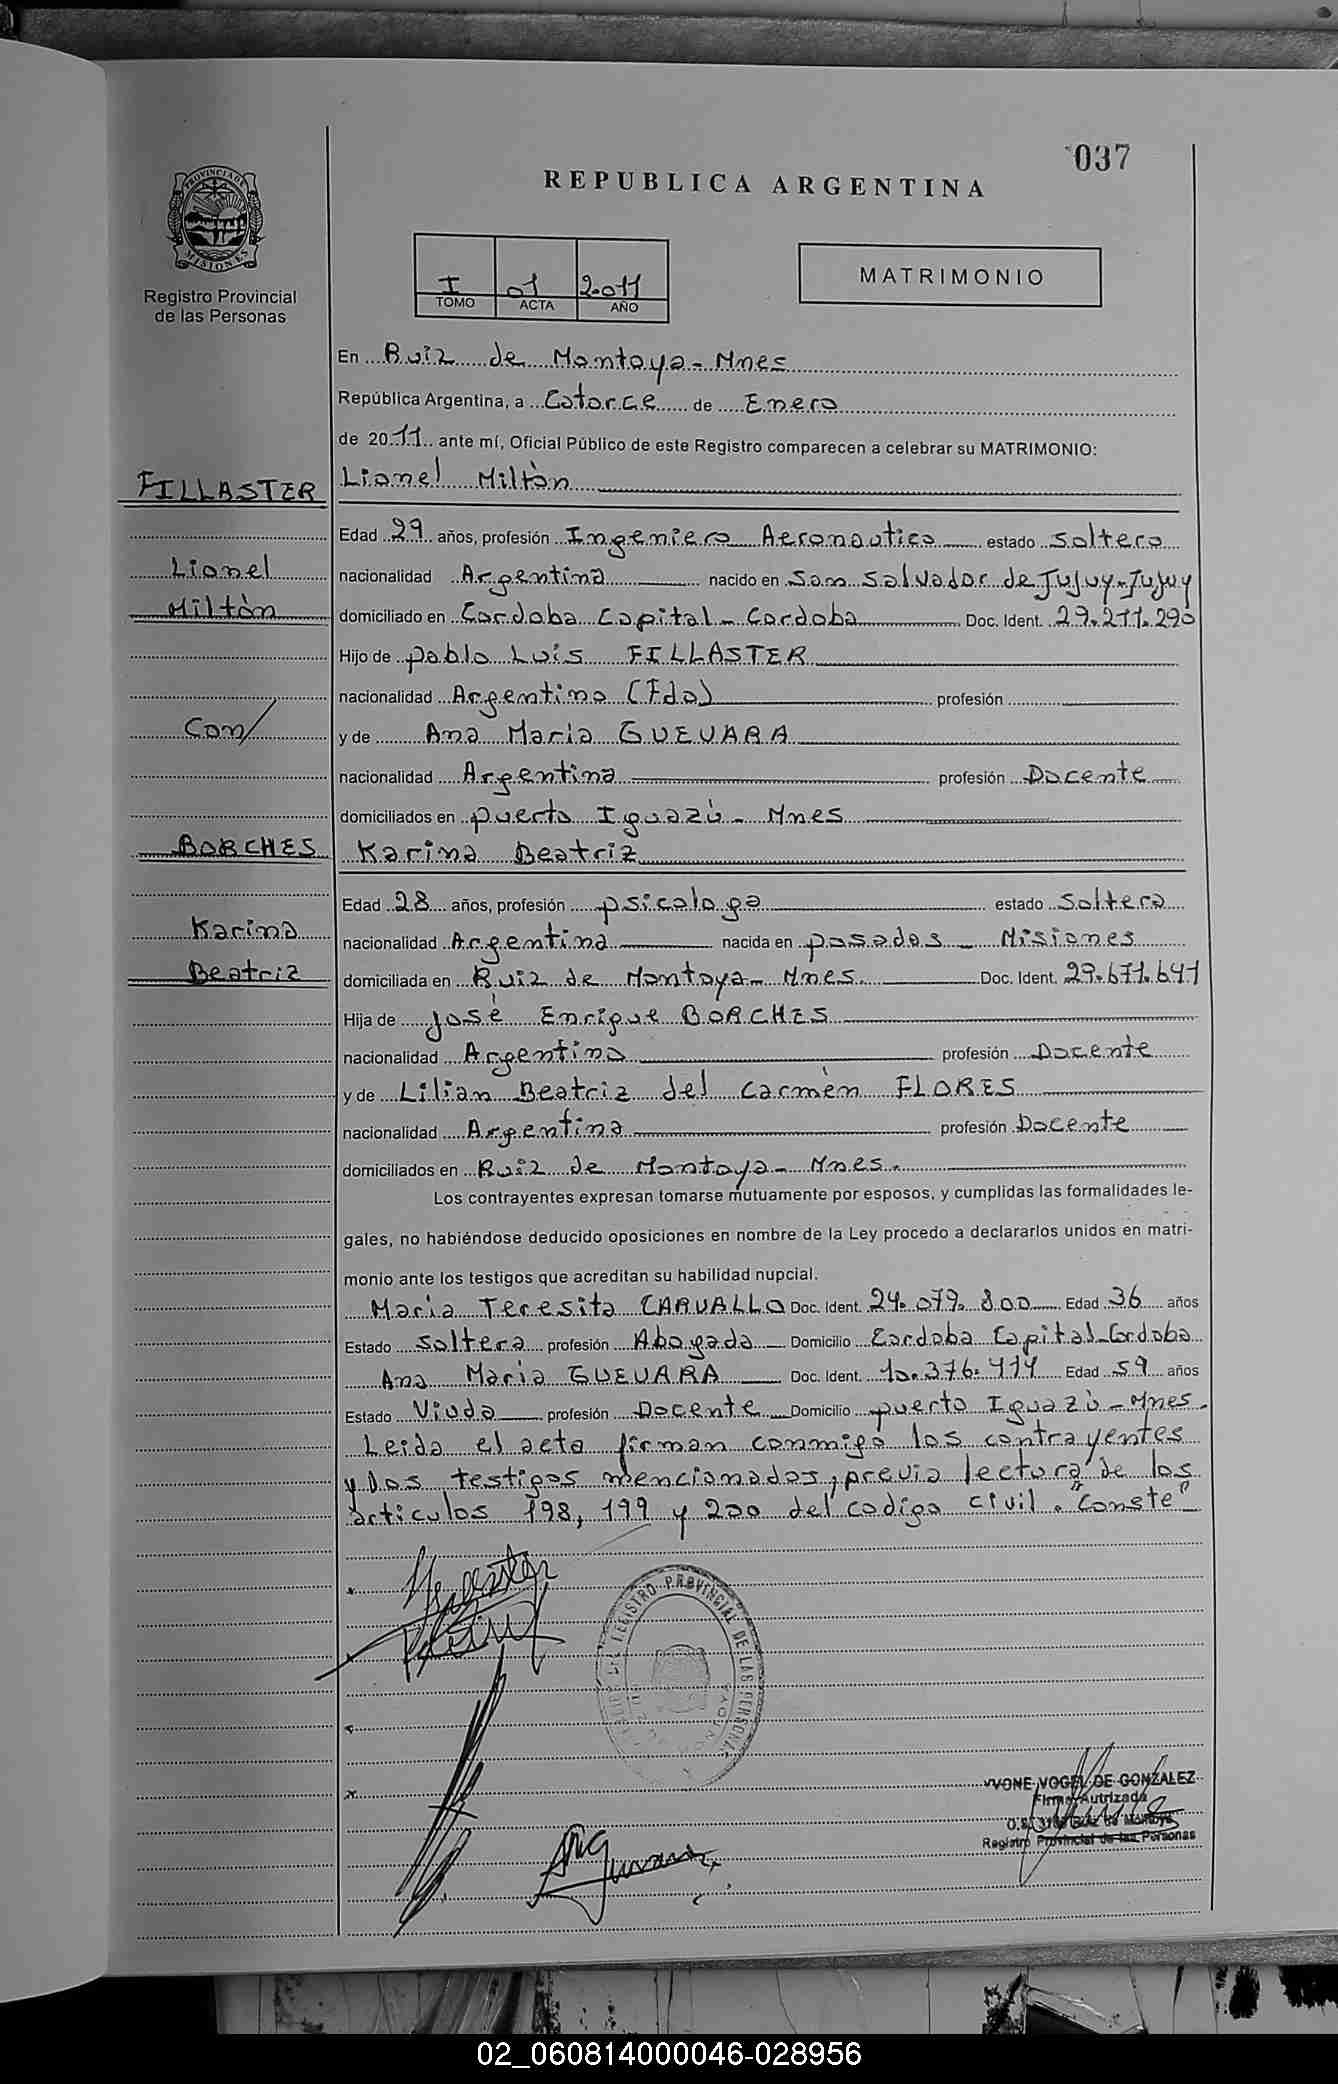 037
REPUBLICA ARGENTINA
PROVINCIA DE
MISIONES
Registro Provincial
de las Personas
I 01 2.011
TOMO ACTA AÑO
MATRIMONIO
En Ruiz de Montoya - Mnes
República Argentina, a Catorce de Enero
de 2011 ante mí, Oficial Público de este Registro comparecen a celebrar su MATRIMONIO:
FILLASTER Lionel Miltòn
Edad 29 años, profesión Ingeniero Aeronautico estado Soltero
Lionel nacionalidad Argentina nacido en San Salvador de Jujuy-Jujuy
Miltòn domiciliado en Cordoba Capital - Cordoba Doc. Ident. 29.211.290
Hijo de pablo Luis FILLASTER
nacionalidad Argentino (Fdo) profesión
Con/ y de Ana Maria GUEVARA
nacionalidad Argentina profesión Docente
domiciliados en puerto Iguazù - Mnes
BORCHES Karina Beatriz
Edad 28 años, profesión psicologa estado Soltera
Karina nacionalidad Argentina nacida en posadas - Misiones
Beatriz domiciliada en Ruiz de Montoya - Mnes. Doc. Ident. 29.671.641
Hija de Josè Enrique BORCHES
nacionalidad Argentino profesión Docente
y de Lilian Beatriz del Carmèn FLORES
nacionalidad Argentina profesión Docente
domiciliados en Ruiz de Montoya - Mnes.
Los contrayentes expresan tomarse mutuamente por esposos, y cumplidas las formalidades le-
gales, no habiéndose deducido oposiciones en nombre de la Ley procedo a declararlos unidos en matri-
monio ante los testigos que acreditan su habilidad nupcial.
Maria Teresita CARVALLO Doc. Ident. 24.079.800 Edad 36 años
Estado Soltera profesión Abogada Domicilio Cordoba Capital-Cordoba
Ana Maria GUEVARA Doc. Ident. 10.376.414 Edad 59 años
Estado Viuda profesión Docente Domicilio puerto Iguazù - Mnes.
Leida el acta firman conmigo los contrayentes
y los testigos mencionados, previa lectura de los
articulos 198, 199 y 200 del codigo civil. "Conste"
REGISTRO PROVINCIAL DE LAS PERSONAS
YVONE VOGEL DE GONZALEZ
Firma Autrizada
Ruiz de Montoya
Registro Provincial de las Personas
02_060814000046-028956